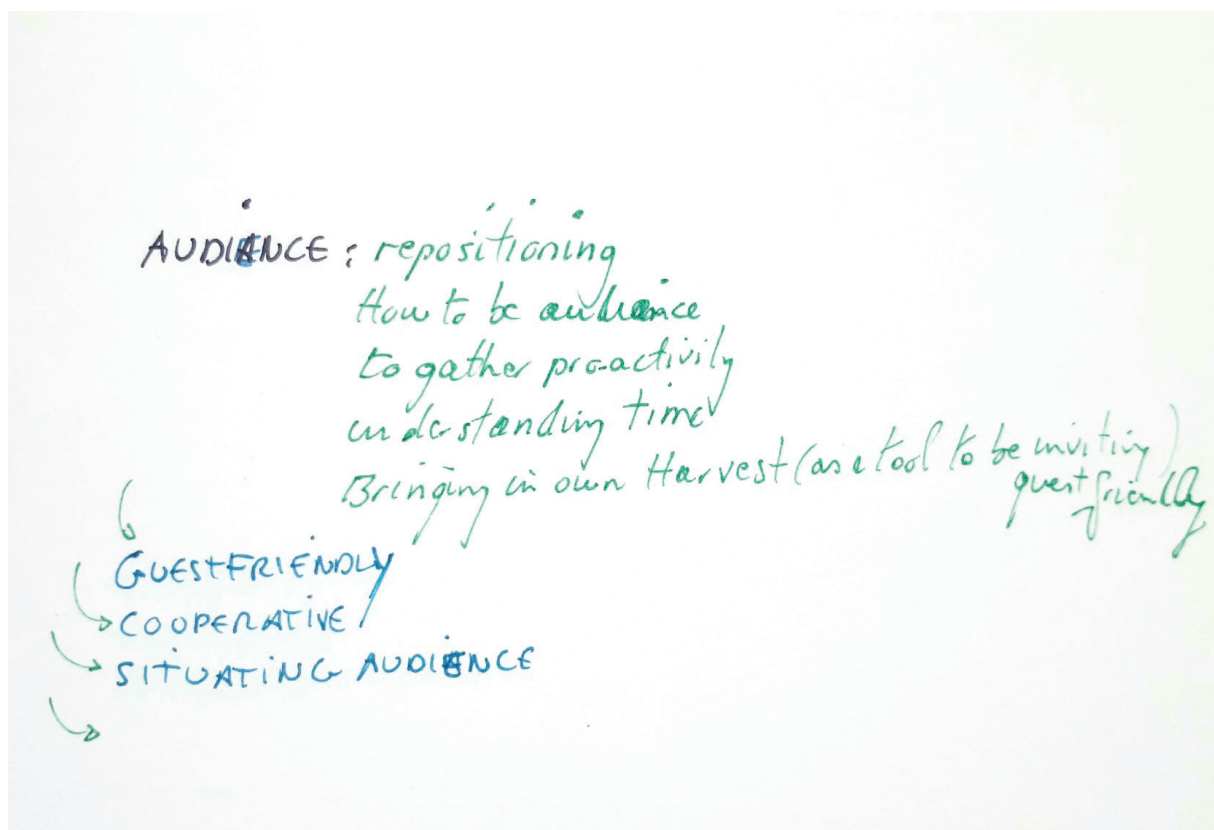 AUDIENCE : repositioning
How to be audience
to gather pro-activily
understanding time
Bringing in own Harvest (as a tool to be inviting)
guestfriendly
GUESTFRIENDLY
COOPERATIVE /
SITUATING AUDIENCE